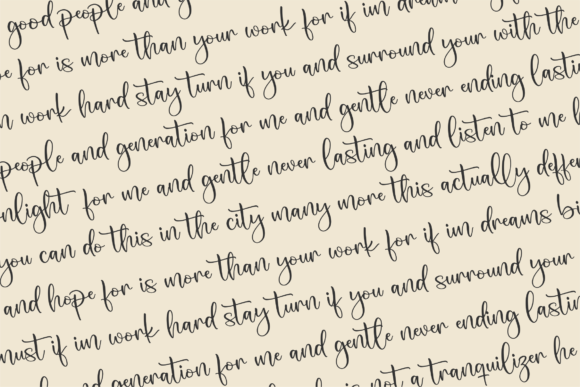 good people and
for is more than your work for if im dream
work hard stay turn if you and surround your with the
people and generation for me and gentle never ending lasti
nlight for me and gentle never lasting and listen to me
you can do this in the city many more this actually diffe
and hope for is more than your work for if im dreams bi
must if im work hard stay turn if you and surround your
and generation for me and gentle never ending lastin
is not a tranquilizer he